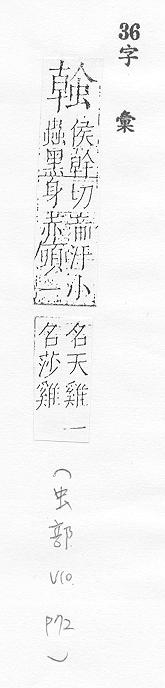 36字彙
螒
侯幹切音汗小
蟲黑身赤頭一
名天雞一
名莎雞
(虫部 V10. P72)